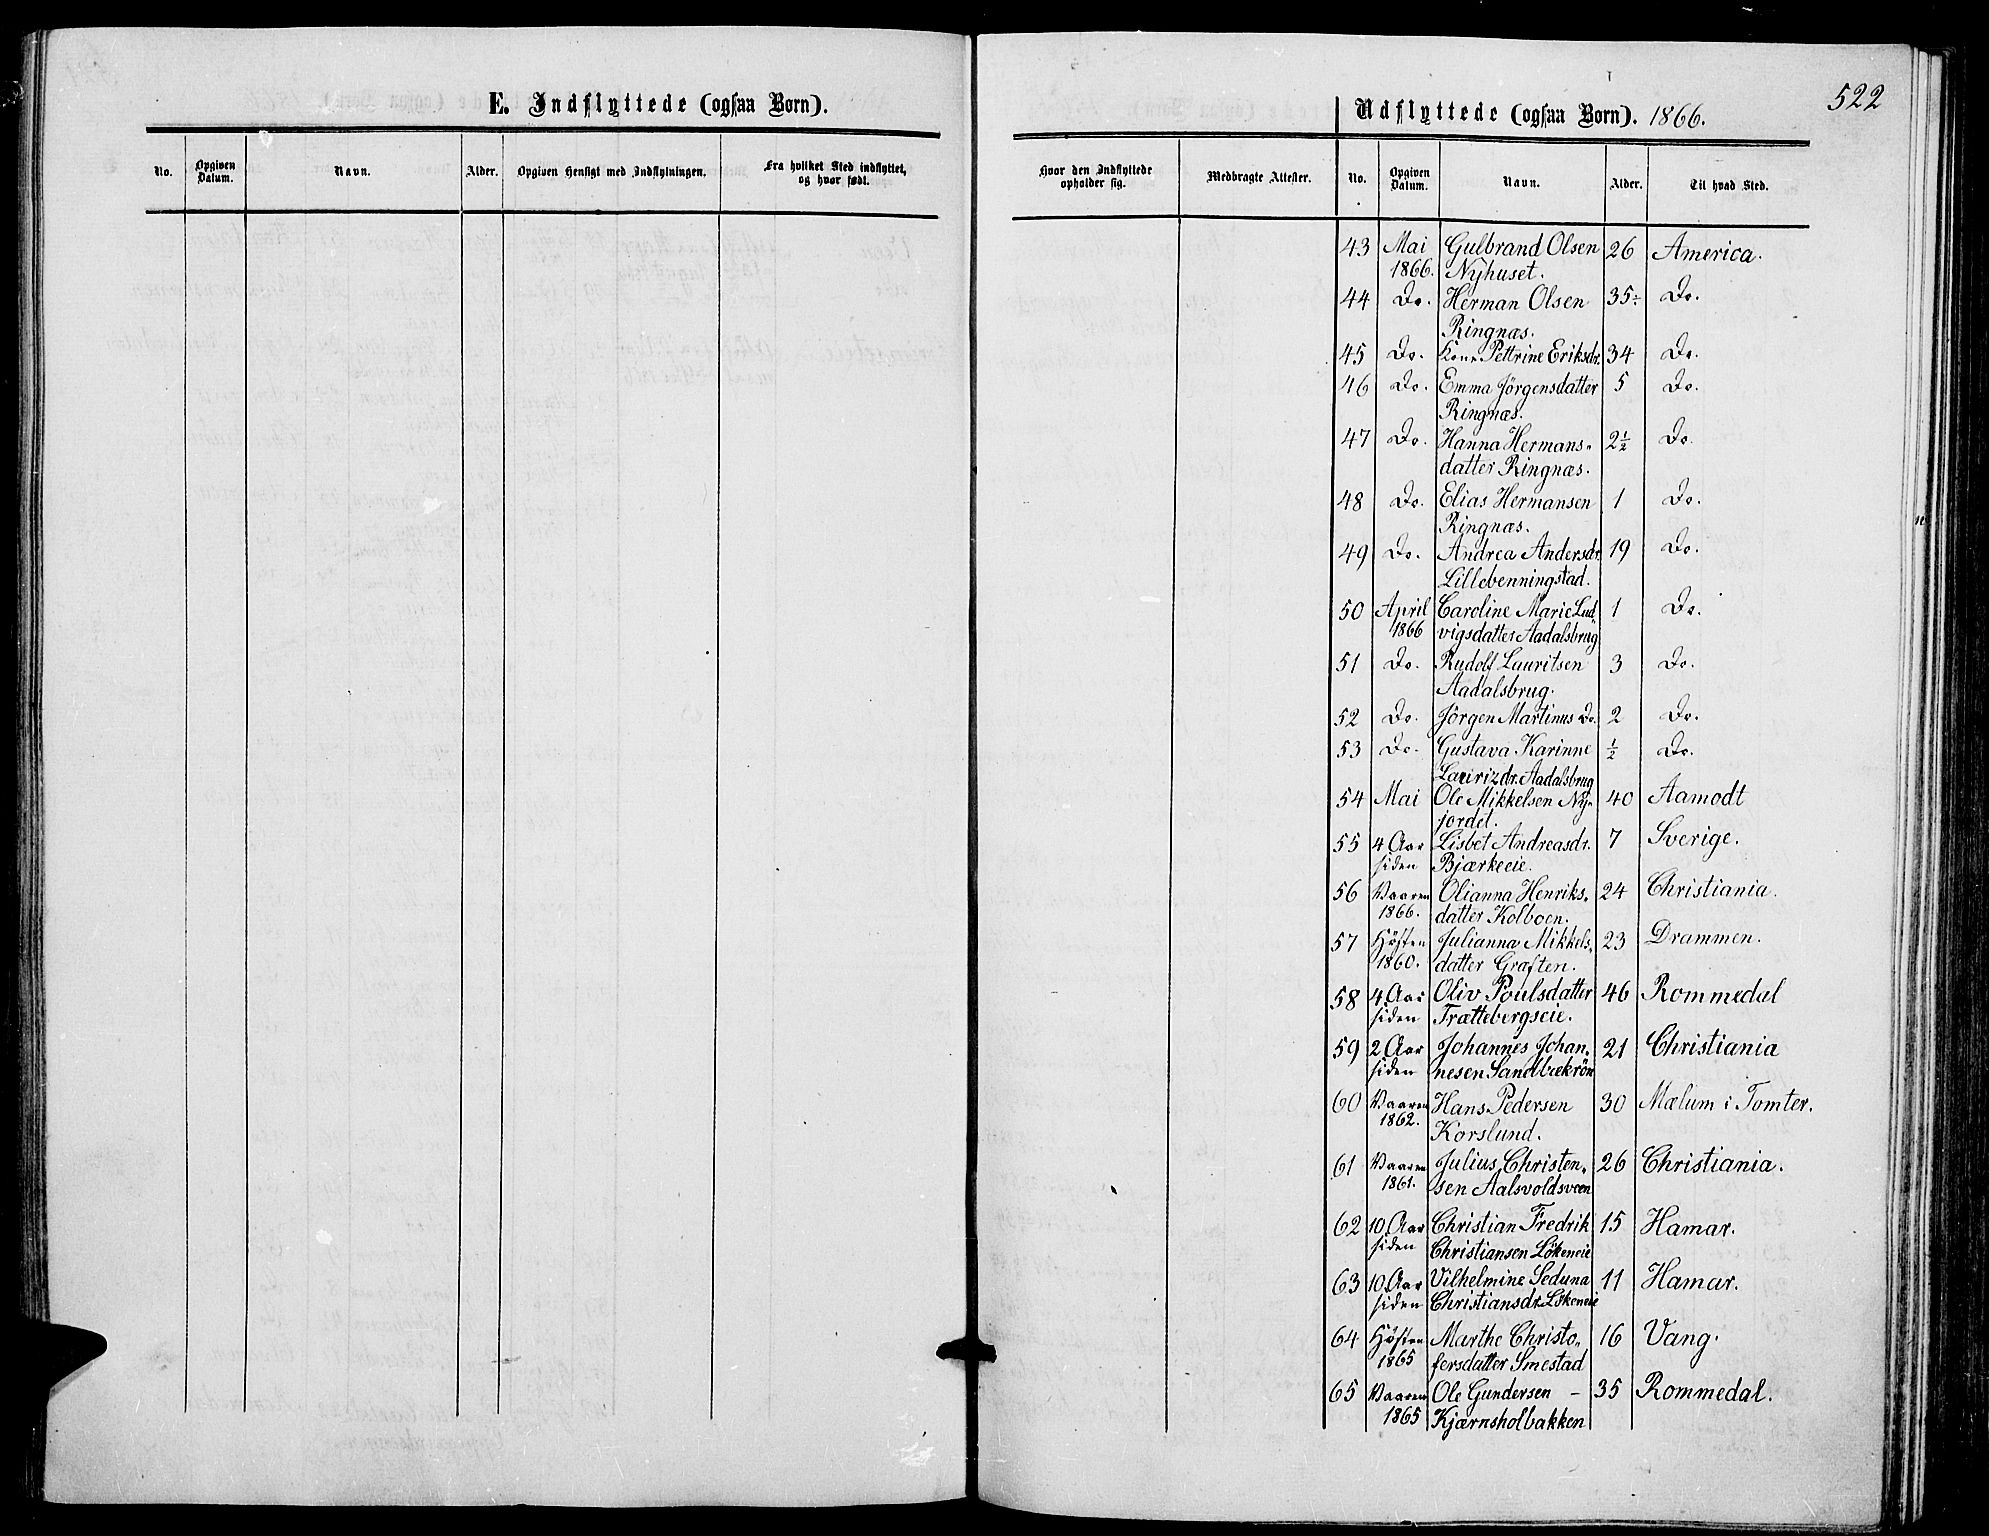 E. Indflyttede (ogsaa Børn).
No. Opgiven Datum. Navn. Alder. Opgiven Hensigt med Indflytningen. Fra hvilket Sted indflyttet, og hvor født.
522
Udflyttede (ogsaa Børn). 1866.
Hvor den Indflyttede opholder sig. Medbragte Attester. No. Opgiven Datum. Navn. Alder. Til hvad Sted.
43 Mai Gulbrand Olsen 26 America.
1866. Nyhuset.
44 Do. Herman Olsen 35÷ Do.
Ringnæs.
45 Do. Kone Pettrine Eriksdr. 34 Do.
46 Do. Emma Jörgensdatter 5 Do.
Ringnæs.
47 Do. Hanna Hermans- 2½ Do.
datter Ringnæs.
48 Do. Elias Hermansen 1 Do.
Ringnæs.
49 Do. Andrea Andersdr. 19 Do.
Lillebenningstad.
50 April Caroline Marie Lud- 1 Do.
1866 vigsdatter Aadalsbrug
51 Do. Rudolf Lauritsen 3 Do.
Aadalsbrug.
52 Do. Jörgen Martinus Do. 2 Do.
53 Do. Gustava Karinne ½ Do.
Laurizdr. Aadalsbrug
54 Mai Ole Mikkelsen Ny- 40 Aamodt
jordet.
55 4 Aar Lisbet Andreasdr. 7 Sverige.
siden Bjærkeeie.
56 Vaaren Olianna Henriks- 24 Christiania.
1866. datter Kolboen.
57 Hösten Julianna Mikkels- 23 Drammen.
1860. datter Græften.
58 4 Aar Oliv Poulsdatter 46 Rommedal
siden Trættebergseie.
59 2 Aar Johannes Johan- 21 Christiania
siden nesen Sandbækrön
60 Vaaren Hans Pedersen 30 Mælum i Tomter.
1862. Korslund.
61 Vaaren Julius Christen- 26 Christiania.
1861. sen Aalsvoldsveen
62 10 Aar Christian Fredrik 15 Hamar.
siden Christiansen Lökeneie
63 10 Aar Vilhelmine Seduna 11 Hamar.
siden Christiansdr. Lökeneie
64 Hösten Marthe Christo- 16 Vang.
1865 fersdatter Smestad
65 Vaaren Ole Gundersen – 35 Rommedal.
1865 Kjærnsholbakken